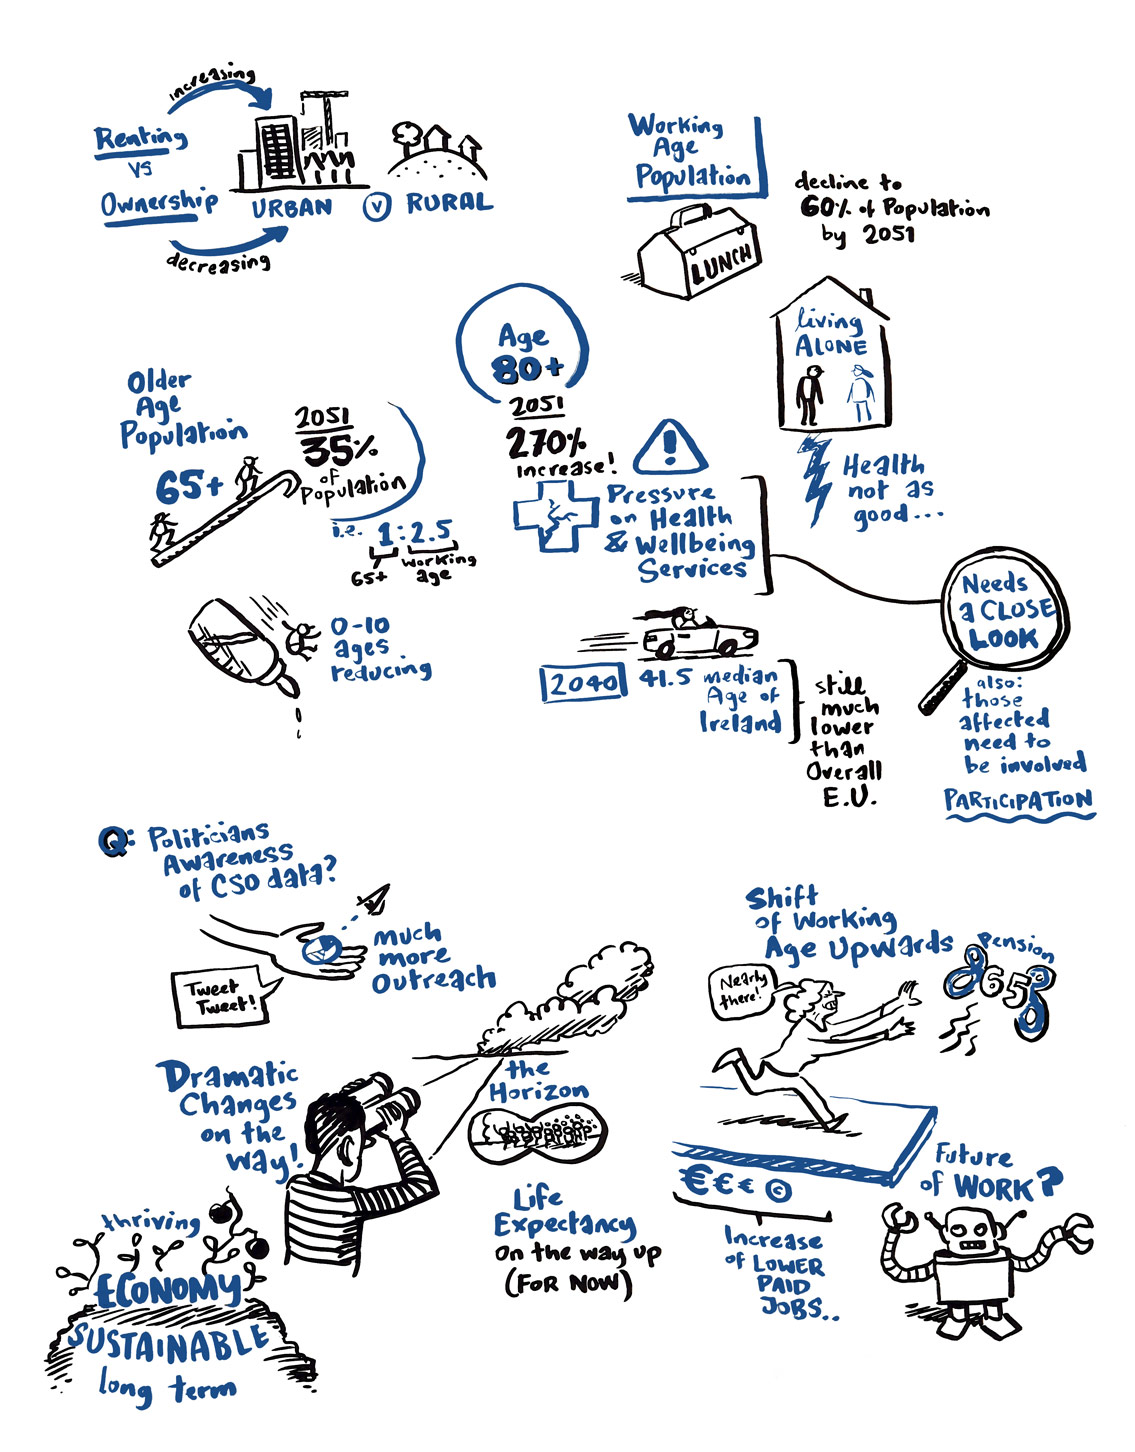 increasing
Renting
vs
Ownership
decreasing
URBAN v RURAL
Working
Age
Population
LUNCH
decline to
60% of Population
by 2051
living
ALONE
Health
not as
good...
Age
80+
2051
270%
increase!
!
Pressure
on Health
& Wellbeing
Services
Older
Age
Population
65+
2051
35%
of
Population
i.e. 1:2.5
65+
working
age
0-10
ages
reducing
2040
41.5 median
Age of
Ireland
still
much
lower
than
Overall
E.U.
Needs
a CLOSE
LOOK
also:
those
affected
need to
be involved
PARTICIPATION
Q: Politicians
Awareness
of CSO data?
Tweet
Tweet!
much
more
Outreach
Dramatic
Changes
on the
way!
the
Horizon
Life
Expectancy
on the way up
(FOR NOW)
thriving
ECONOMY
SUSTAINABLE
long term
Shift
of Working
Age Upwards
Pension
65
Nearly
there!
€€€ €
Increase
of LOWER
PAID
JOBS..
Future
of WORK?